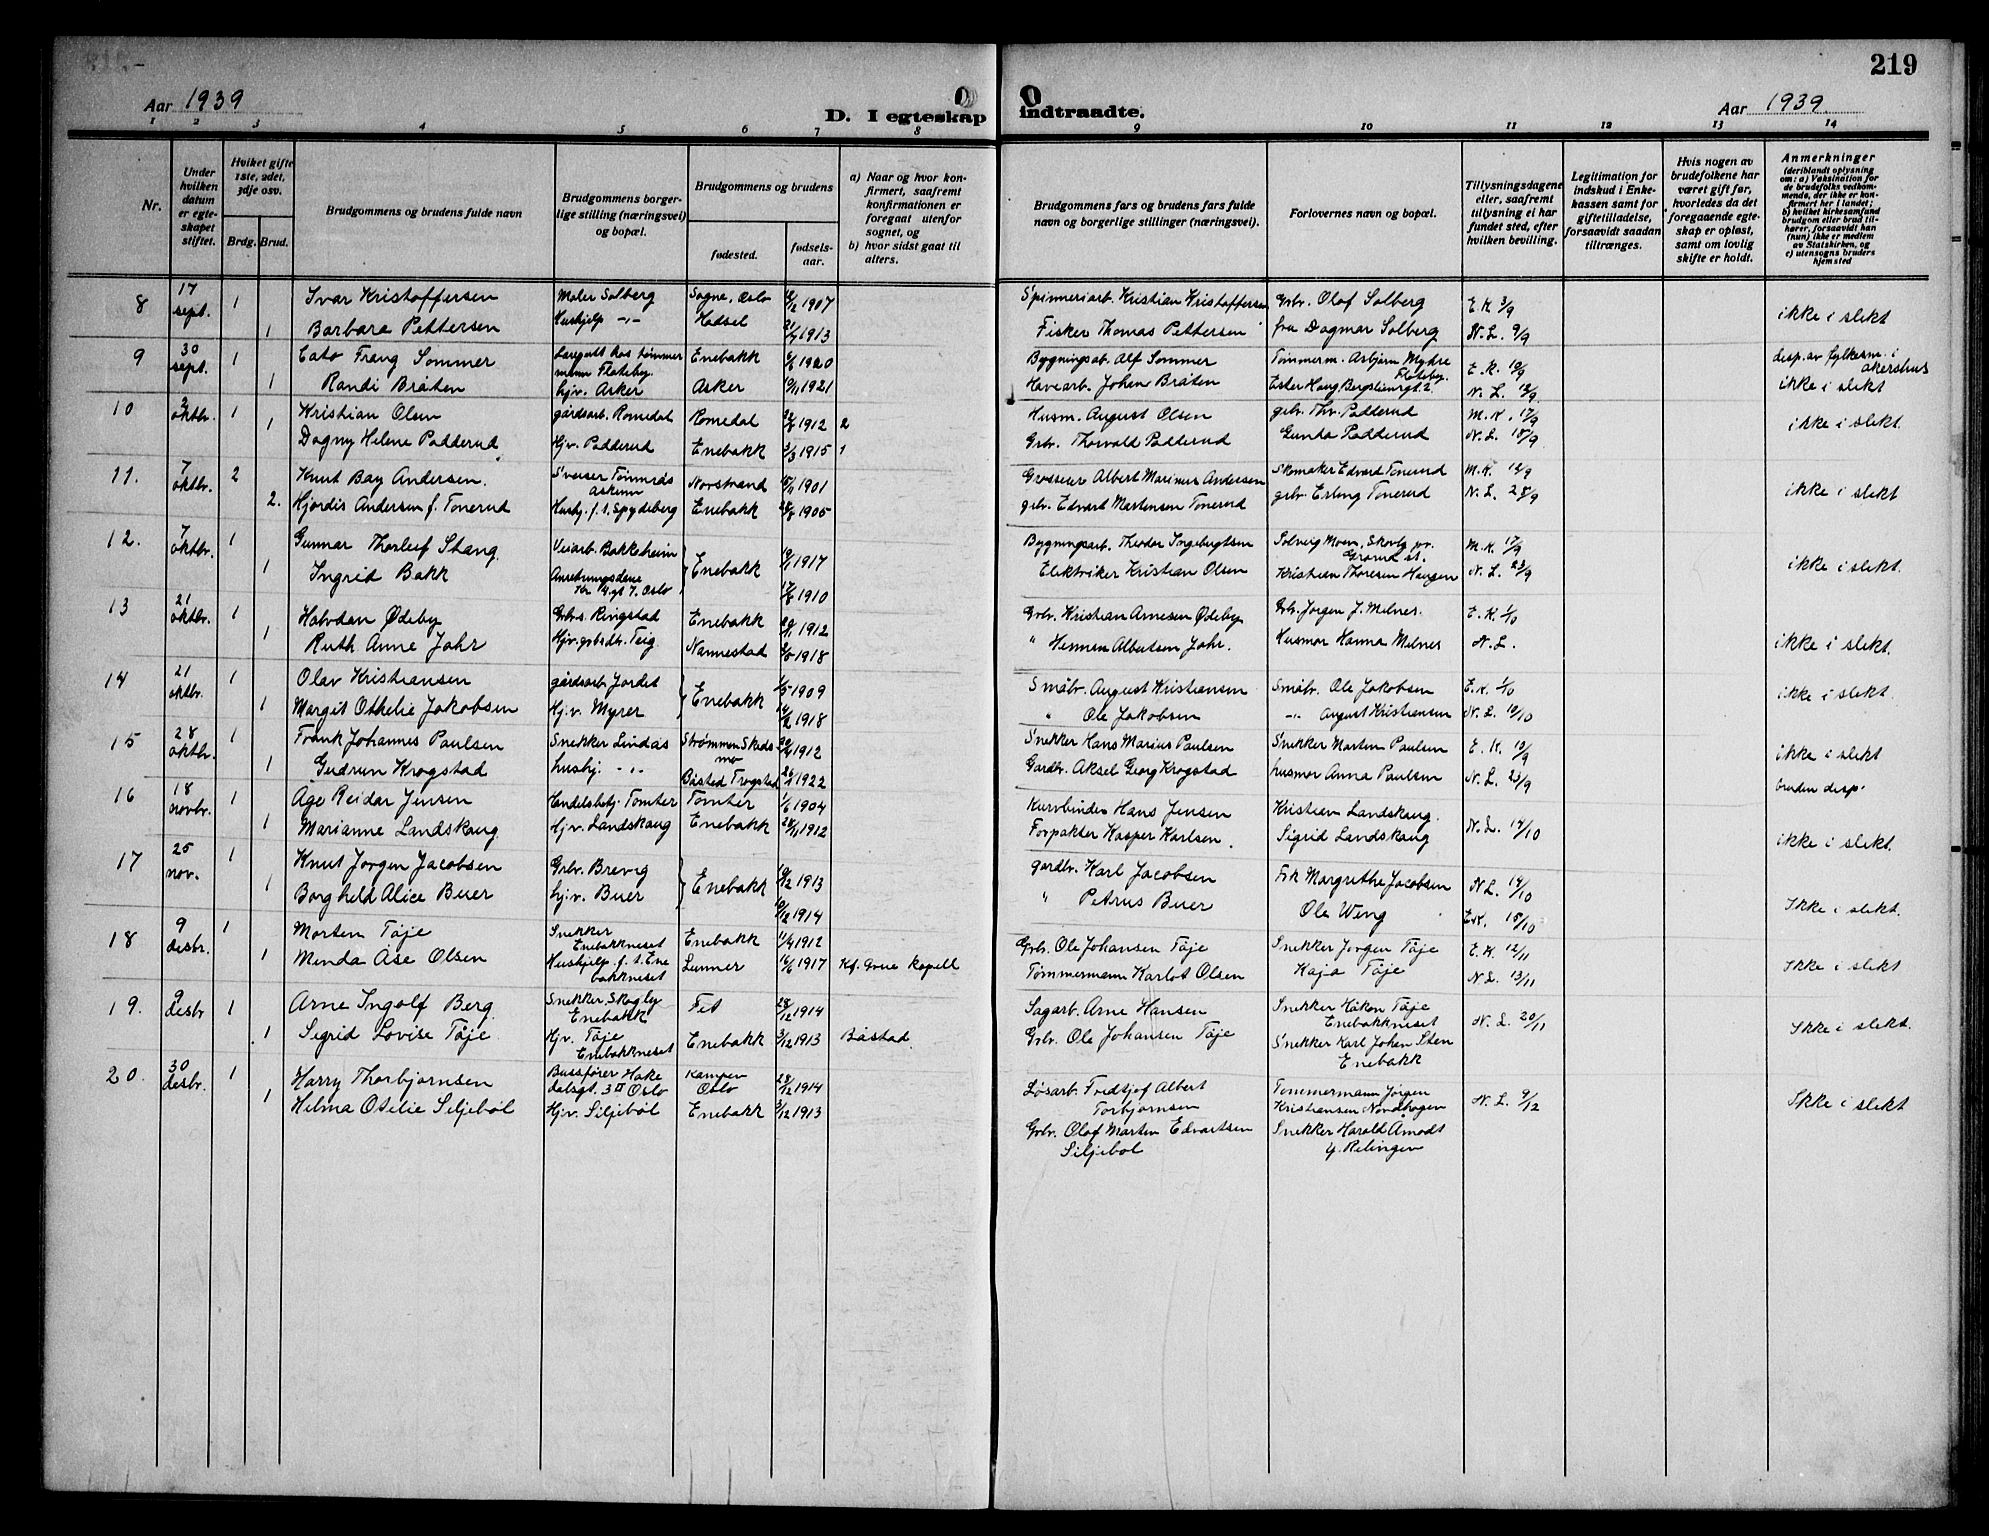 219
Aar 1939
D. I egteskap indtraadte.
Aar 1939
1 2 3 4 5 6 7 8 9 10 11 12 13 14
Nr.
Under hvilken datum er egteskapet stiftet.
Hviket gifte 1ste, 2det, 3dje osv.
Brdg. Brud.
Brudgommens og brudens fulde navn
Brudgommens borgerlige stilling (næringsvei) og bopæl.
Brudgommens og brudens
fødested.
fødselsaar.
a) Naar og hvor konfirmert, saafremt konfirmationen er foregaat utenfor sognet, og
b) hvor sidst gaat til alters.
Brudgommens fars og brudens fars fulde navn og borgerlige stillinger (næringsvei).
Forlovernes navn og bopæl.
Tillysningsdagene eller, saafremt tillysning ei har fundet sted, efter hvilken bevilling.
Legitimation for indskud i Enkekassen samt for giftetilladelse, forsaavidt saadan tiltrænges.
Hvis nogen av brudefolkene har været gift før, hvorledes da det foregaaende egteskap er opløst, samt om lovlig skifte er holdt.
Anmerkninger
(deriblandt oplysning om: a) Vaksination for de brudefolks vedkommende, der ikke er konfirmert her i landet; b) hvilket kirkesamfund brudgom eller brud tilhører, forsaavidt han (hun) ikke er medlem av Statskirken, og c) utensogns bruders hjemsted
8 17 sept. 1 Ivar Kristoffersen Maler Solberg Sagne, Oslo 1907 Spinneriarb. Kristian Kristoffersen Grbr. Olaf Solberg E.K. 3/9
1 Barbara Pettersen Hushjelp -"- Hadsel 1913 Fisker Thomas Pettersen fru Dagmar Solberg N.L. 9/9 ikke i slekt
9 30 sept. 1 Cato Frang Sommer tømmermann Flateby. Enebakk 1920 Bygningsab. Alf Sommer Tømmerm. Asbjørn Mydre Flateby. E.K. 10/9 desp. av fylkesm. i Akershus
1 Randi Bråten hjv. Asker Asker 1921 Havearb. Johan Bråten Ester Haug N.L. ikke i slekt
10 2 oktbr. 1 Kristian Olsen gårdsarb. Romedal Romedal 1912 2 Husm. August Olsen gbr. Thv. Padderud M.K. 17/9
1 Dagny Helene Padderud Hjv. Padderud Enebakk 3/3 1915 1 Grbr. Thorvald Padderud Gunda Padderud N.L. ikke i slekt.
11. 7 oktbr. 2 Knut Bay Andersen. Sveiser Tømmerås Askim Norstrand 1901 Grosserer Albert Marinus Andersen Skomaker Edvard Tonerud M.K.
2. Hjørdis Andersen f. Tonerud Hushj. f. t. Spydeberg Enebakk 1905 gbr. Edvart Martensen Tonerud gbr. Erling Tonerud N.L. 28/9 ikke i slekt
12. 7 oktbr. 1 Gunnar Thorleif Stang Veiarb. Bakkeheim Enebakk 1917 Bygningsarb. Theodor Ingebrigtsen Solveig Moen, M.K. 17/9
1 Ingrid Bakk Oslo 1910 Elektriker Kristian Olsen Kristian Thoresen Haugen N.L. 23/9 ikke i slekt.
13 21 oktbr. 1 Halvdan Ødeby Grbrs. Ringstad Enebakk 1912 Grbr. Kristian Arnesen Ødeby Grb. Jørgen J. Melnes. E.K. 1/10
1 Ruth Anne Jahr Hjv. Teig Nannestad 1918 " Herman Albertsen Jahr. Husmor Hanna Melnes N.L. ikke i slekt.
14 21 oktbr. 1 Olav Kristiansen gårdsarb. Jordet Enebakk 1909 Småbr. August Kristiansen Småbr. Ole Jakobsen E.K. 1/10
1 Margit Othelie Jakobsen Hj.v. Myrer 1918 " Ole Jakobsen -"- August Kristiansen N.L. ikke i slekt
15 28 oktbr. 1 Frank Johannes Paulsen Snekker Lindås Strømmen Skedsmo 1912 Snekker Hans Marius Paulsen Snekker Morten Paulsen E.K.
1 Gudrun Krogstad hushj. -"- Båstad Trøgstad 1922 Gardbr. Aksel Georg Krogstad husmor Anna Paulsen N.L. 23/9 ikke i slekt
bruden desp.
16 18 novbr. 1 Åge Reidar Jensen Handelsbetj. Tomter Tomter 1904 Kurvbinder Hans Jensen Kristian Landskaug.
1 Marianne Landskaug. Hj.v. Landskaug Enebakk 1912 Forpakter Kasper Karlsen. Sigrid Landskaug N.L. 14/10 ikke i slekt.
17 25 nov. 1 Knut Jørgen Jacobsen Grbr. Brevig Enebakk 1913 gardbr. Karl Jacobsen Frk Margrethe Jacobsen N.L. 14/10
1 Borghild Alice Buer hj.v. Buer 1914 " Petrus Buer Ole Weng E.K. 15/10 Ikke i slekt.
18 9 desbr. 1 Morten Tåje Snekker Enebakkneset Enebakk 11/4 1912 Grbr. Ole Johansen Tåje Snekker Jørgen Tåje E.K. 12/11
1 Minda Åse Olsen Hushjelp f. t. Enebakkneset Lunner 16/6 1917 Kf. Grue kapell Tømmermann Karlot Olsen Kaja Tåje N.L. 13/11 Ikke i slekt
19. 9 desbr 1 Arne Ingolf Berg. Snekker Skogly Enebakk Fet 28/12 1914 Sagarb. Arne Hansen Snekker Håkon Tåje Enebakkneset N.L. 20/11
1 Sigrid Lovise Tåje Hjv. Tåje Enebakkneset Enebakk 3/12 1913 Båstad Grbr. Ole Johansen Tåje Snekker Karl Johan Sten Enebakk Ikke i slekt.
20. 30 desbr. 1 Harry Thorbjørnsen Bussfører Hakedalsgt. 3 II Oslo Kampen Oslo 28/12 1914 Løsarb. Fredtjof Albert Torbjørnsen Tømmermann Jørgen Kristiansen Nordhagen N.L. 9/12
1 Helma Otelie Siljebøl Hjv. Siljebøl Enebakk 3/12 1913 Grbr. Olaf Marten Edvartsen Siljebøl Snekker Harald Åmodt Relingen Ikke i slekt